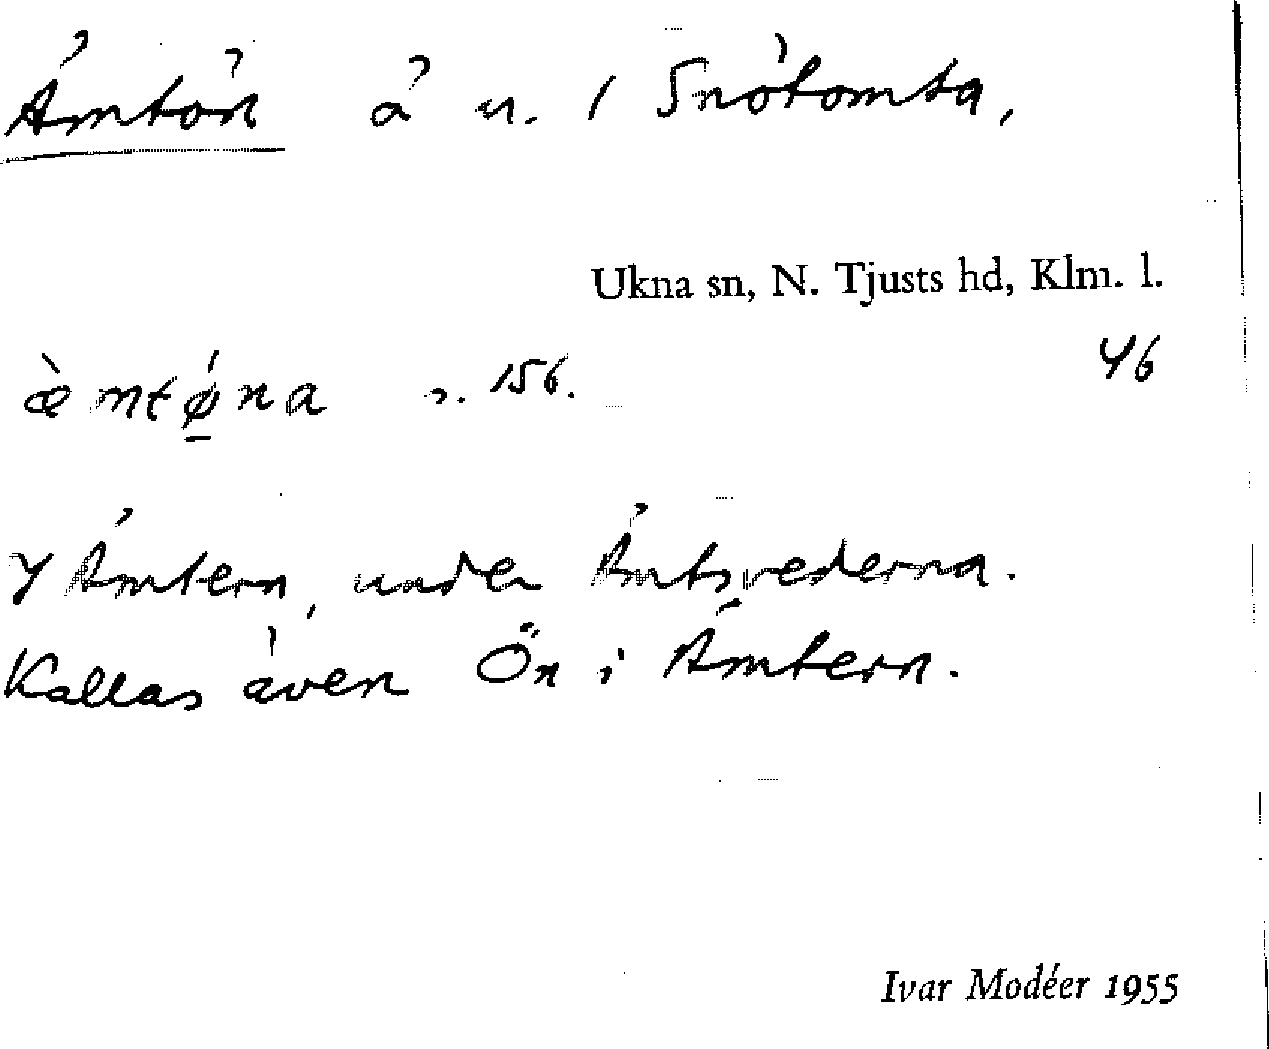 Ämtön ö u. / Snötomta,
Ukna sn, N. Tjusts hd, Klm. l.
46
æ̀mtǿ̱na 156.
Y Ämtern, under Ämtsvederna.
Kallas även Ön i Ämtern.
Ivar Modéer 1955